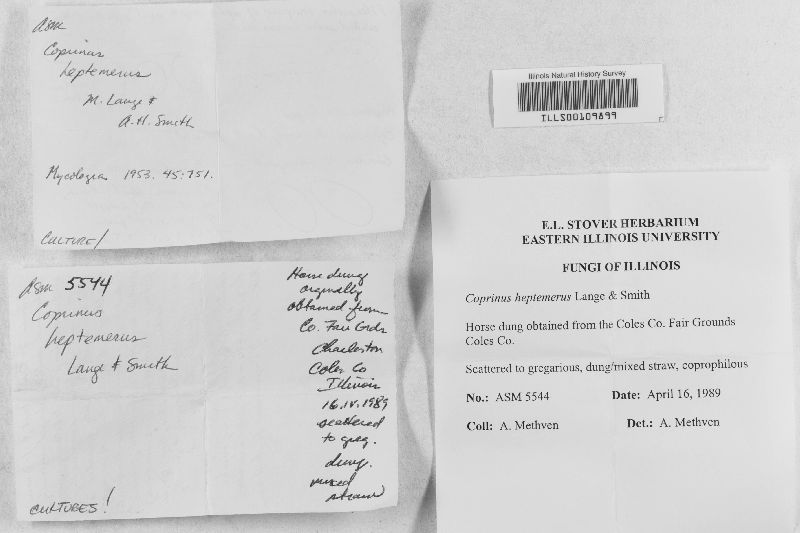 ASM
Coprinus
heptemerus
M. Lange &
A.H. Smith
Mycologia 1953. 45:751.
CULTURE!
ASM 5544
Coprinus
heptemerus
Lange & Smith
CULTURES!
Horse dung
orginally
obtained from
Co. Fair Grds
Charleston
Coles Co
Illinois
16.IV.1989
scattered
to greg.
dung.
mixed
straw
Illinois Natural History Survey
ILLS00109899
E.L. STOVER HERBARIUM
EASTERN ILLINOIS UNIVERSITY
FUNGI OF ILLINOIS
Coprinus heptemerus Lange & Smith
Horse dung obtained from the Coles Co. Fair Grounds
Coles Co.
Scattered to gregarious, dung/mixed straw, coprophilous
No.: ASM 5544 Date: April 16, 1989
Coll: A. Methven Det.: A. Methven